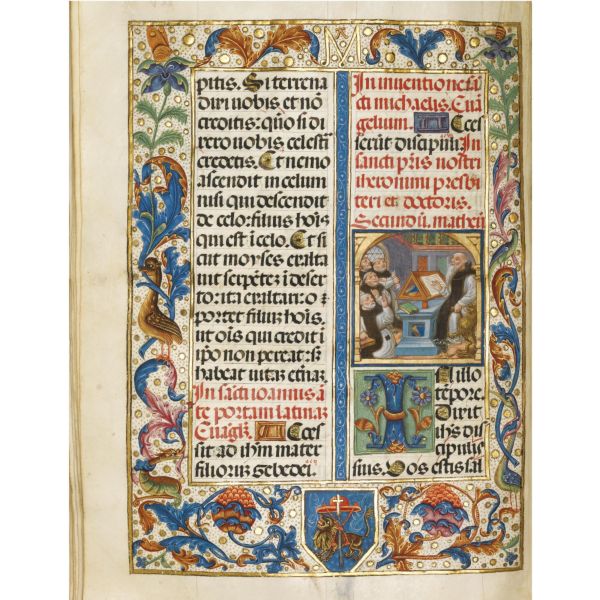 M
pitis. Si terrena
dixi uobis et nō
creditis: quō si di
xero uobis celesti
credetis. Et nemo
ascendit in celum
nisi qui descendit
de celo: filius hoīs
qui est ī celo. Et si
cut moyses exalta
uit serpētez ī deser
to: ita exaltari o
portet filiuz hoīs.
ut oīs qui credit ī
ipō non pereat: sz
habeat uitaz etnaz
In sācti ioannis ā
te portam latinaz
Euāgliz. Acces
sit ad ihm mater
filioruz zebedei.
In inuentione sā
cti michaelis. Euā
gelium. Acces
serūt discipuli: In
sancti pr̄is nostri
iheronimi presbi
teri et doctoris.
Secundū. matheū
In illo
tēpore.
Dixit
ihs dis
cipulis
suis. Vos estis sal